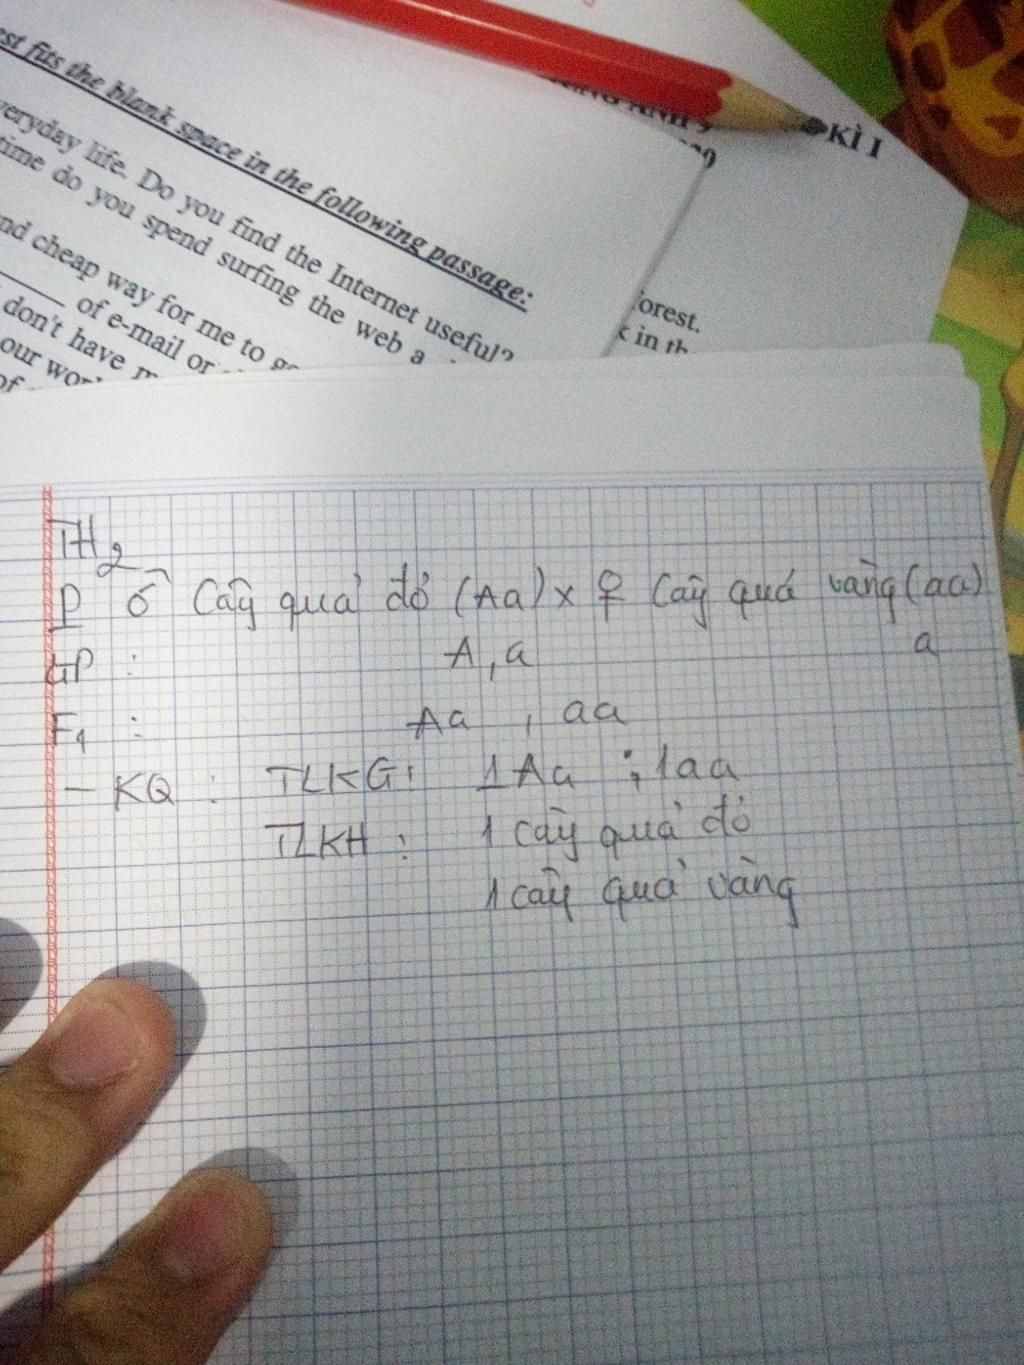 est fits the blank space in the following passage:
everyday life. Do you find the Internet useful?
time do you spend surfing the web a
nd cheap way for me to
of e-mail or
don't have
our
of
ANH 9
KÌ I
orest.
in th
TH2
P ♂ Cây quả đỏ (Aa) x ♀ Cây quả vàng (aa)
GP : A, a a
F1 : Aa , aa
- KQ : TLKG: 1Aa : 1aa
TLKH : 1 cây quả đỏ
1 cây quả vàng